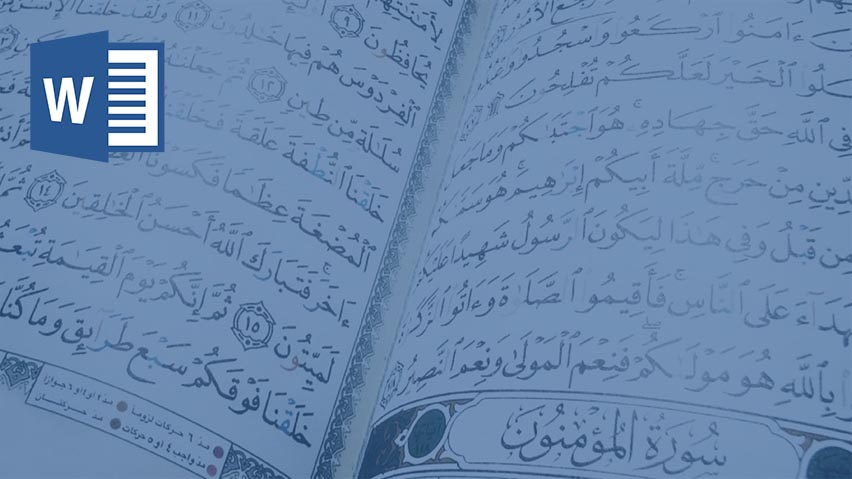 W
ءَامَنُوا۟ ٱرْكَعُوا۟ وَٱسْجُدُوا۟
ٱلْخَيْرَ لَعَلَّكُمْ تُفْلِحُونَ
فِى ٱللَّهِ حَقَّ جِهَادِهِۦ ۚ هُوَ ٱجْتَبَىٰكُمْ وَمَا جَعَلَ
مِنْ حَرَجٍ ۚ مِّلَّةَ أَبِيكُمْ إِبْرَٰهِيمَ ۚ هُوَ
مِن قَبْلُ وَفِى هَٰذَا لِيَكُونَ ٱلرَّسُولُ شَهِيدًا
عَلَى ٱلنَّاسِ ۚ فَأَقِيمُوا۟ ٱلصَّلَوٰةَ وَءَاتُوا۟
بِٱللَّهِ هُوَ مَوْلَىٰكُمْ ۖ فَنِعْمَ ٱلْمَوْلَىٰ وَنِعْمَ ٱلنَّصِيرُ
سُورَةُ المُؤْمِنُونَ
يُحَافِظُونَ ٩
ٱلْفِرْدَوْسَ هُمْ فِيهَا خَٰلِدُونَ ١١ وَلَقَدْ خَلَقْنَا ٱلْإِنسَٰنَ
سُلَٰلَةٍ مِّن طِينٍ ١٢ ثُمَّ جَعَلْنَٰهُ
خَلَقْنَا ٱلنُّطْفَةَ عَلَقَةً فَخَلَقْنَا
ٱلْمُضْغَةَ عِظَٰمًا فَكَسَوْنَا
ءَاخَرَ ۚ فَتَبَارَكَ ٱللَّهُ أَحْسَنُ ٱلْخَٰلِقِينَ ١٤ ثُمَّ
لَمَيِّتُونَ ١٥ ثُمَّ إِنَّكُمْ يَوْمَ ٱلْقِيَٰمَةِ
خَلَقْنَا فَوْقَكُمْ سَبْعَ طَرَآئِقَ وَمَا كُنَّا
مد ٦ حركات لزوماً مد ٢ او ٤ او ٦ جوازاً
مد واجب ٤ او ٥ حركات مد حركتان